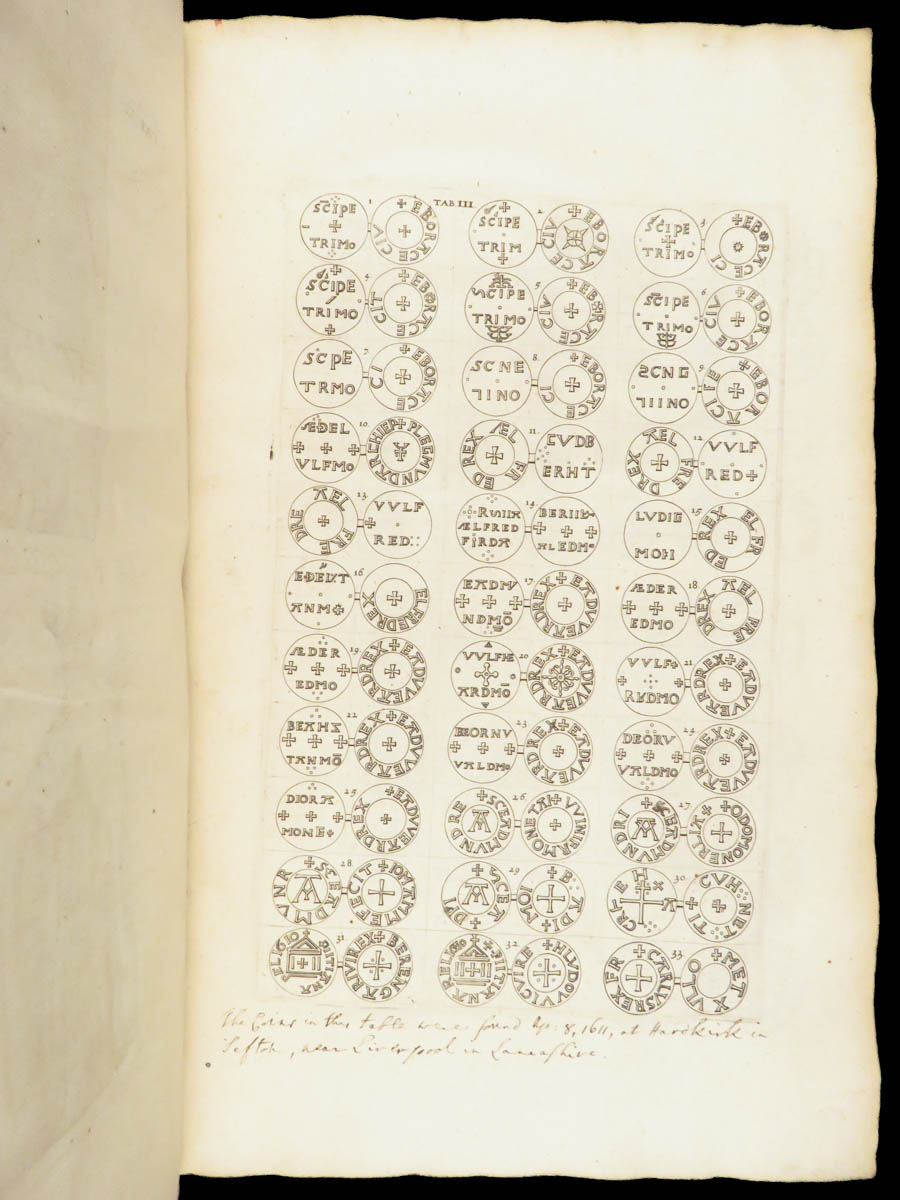 TAB III
1. SCIPE TRIMO + EBORACE CIV
2. SCIPE TRIM + EBORACE CIV
3. SCIPE TRIMO + EBORACE CI
4. SCIPE TRIMO + EBORACE CIT
5. SCIPE TRIMO + EBORACE CIV
6. SCIPE TRIMO + EBORACE CIV
7. SCPE TRMO + EBORACE CI
8. + EBORACE CI
9. + EBORACIFE
10. ÆÐEL VLFMO + PLEGMVND ARCHIEP
11. ÆLFRED REX CVDB ERHT
12. AELFRED REX VVLF RED+
13. AELFRE DRE VVLF RED
14. ÆLFRED ALEDMO
15. LVDIG ELFRED REX
16. ANM ELFREDREX
17. EADMV NDMO + EADVVEARDREX
18. ÆDER EDMO AELFRE DREX
19. ÆDER EDMO + EADVVEARDREX
20. VVLFHE ARDMO + EADVVEARDREX
21. VVLF RVDMO + EADVVEARDREX
22. BEAHS TANMO + EADVVEARDREX
23. BEORNV VALDMO + EADVVEARDREX
24. DEORV VALDMO + EADVVEARDREX
25. DIORA MONE+ + EADVVEARDREX
26. + SCEADMVNDRE A
27. EADMVNDRI A + ODOMONERLIA
28. + SCEADMVNR A
29. + SCEA DPI A
30. CVH NET TI
31. + BERENGARIVIREX
32. + HLVDOVVICVIRE
33. + CARLVSREXFR + MET X VLLO
The Coins in this table were found Ap: 8, 1611, at Hardkirk in
Sefton, near Liverpool in Lancashire.